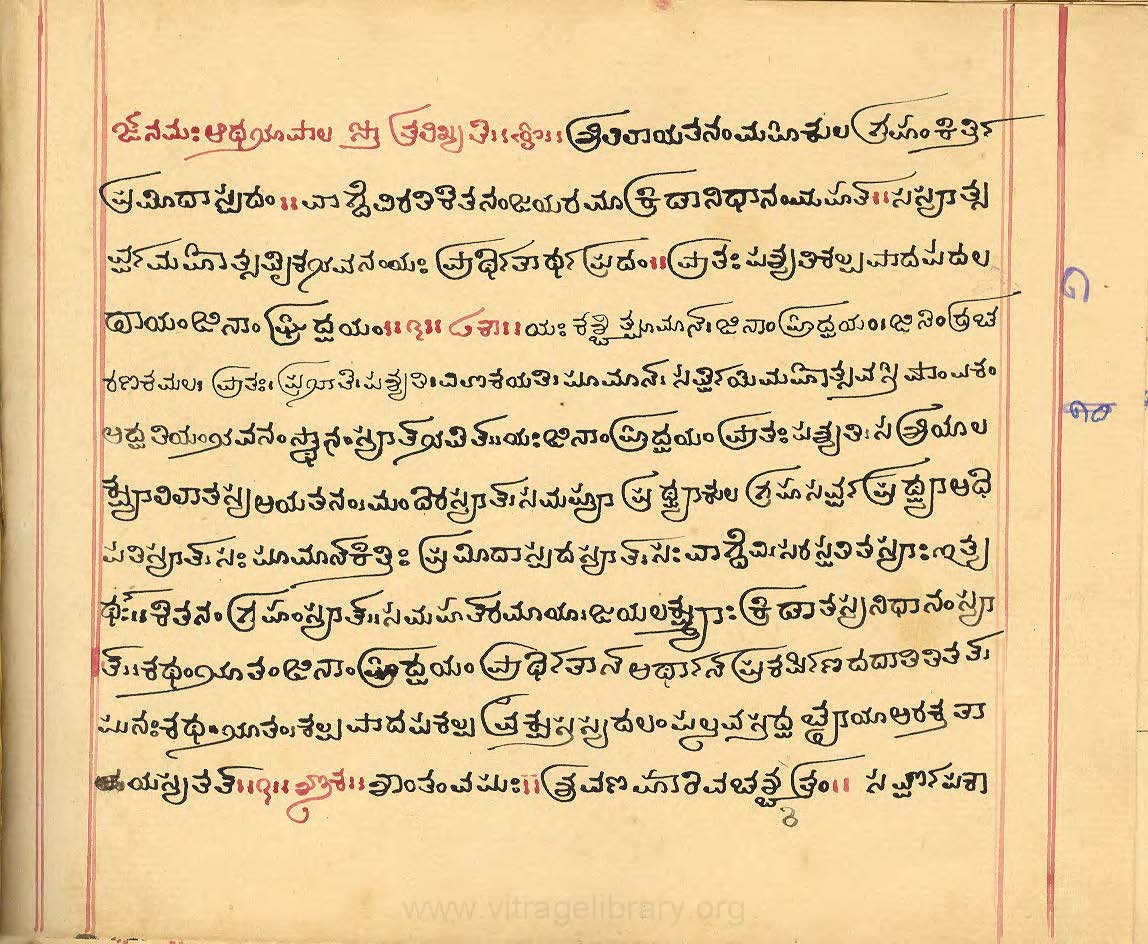 ಓಂನಮಃ ಅಥಭೂಪಾಲ ಸ್ತೋತ್ರಲಿಖ್ಯತಿ॥ಶ್ಲೋ॥ ಶ್ರಿಲಿಲಾಯತನಂಮಹಿಕುಲ ಗ್ರಹಂಕಿರ್ತಿ
ಪ್ರಮೋದಾಸ್ಪದಂ॥ವಾಗ್ದೆವಿರತಿಕೆತನಂಜಯರಮಾಕ್ರಿಡಾನಿಧಾನಂಮಹತ್॥ಸಸ್ಯಾತ್ಸ
ರ್ವಮಹೋತ್ಸವೈಕಭವನಂಯಃ ಪ್ರಾರ್ಥಿತಾರ್ಥ ಪ್ರದಂ॥ಪ್ರಾತಃ ಪಶ್ಯತಿಕಲ್ಪಪಾದಪದಲ
ಛಾಯಂ ಜಿನಾಂಘ್ರಿದ್ವಯಂ॥೧॥ ಟಿಕಾ॥ ಯಃ ಕಶ್ಚಿತ್ಪೂಮಾನ್। ಜಿನಾಂಘ್ರಿದ್ವಯಂ। ಜಿನೆಂದ್ರಚ
ರಣಕಮಲ। ಪ್ರಾತಃ। ಪ್ರಭಾತೆ। ಪಶ್ಯತಿ। ವಿಲೋಕಯತಿ। ಪೂಮಾನ್।
ಅದ್ವತಿಯಂಭವನಂಸ್ಥಾನಂಸ್ಯಾತ್ಭವೆತ್।ಯಃ ಜಿನಾಂಘ್ರಿದ್ವಯಂ ಪ್ರಾತಃ ಪಶ್ಯತಿ। ಸ ಶ್ರಿಯಾಲ
ಆಯತನಂ।ಮಂದಿರಸ್ಯಾತ್।ಸಮಹ್ಯಾ ಪ್ರಥ್ವ್ಯಾಕುಲ ಗ್ರಹಸರ್ವ ಪ್ರಥ್ವ್ಯಾಅಧಿ
ಪತಿಸ್ಯಾತ್।ಸಃ ಪೂಮಾನ್ಕಿರ್ತಿಃ ಪ್ರಮೋದಾಸ್ಪದಸ್ಯಾತ್।ಸಃ ವಾಗ್ದೆವಿ।ಸರಸ್ವತಿತಸ್ಯಾಃ ಇತ್ಯ
ರ್ಥಃ॥ಕೆತನಂ ಗ್ರಹಂಸ್ಯಾತ್॥ಸಮಹತರಮಾಯಾ।ಜಯಲಕ್ಷ್ಮ್ಯಾಃ ಕ್ರಿಡಾತಸ್ಯನಿಧಾನಂಸ್ಯಾ
ತ್॥ಕಥಂಭೂತಂಜಿನಾಂಘ್ರಿದ್ವಯಂ ಪ್ರಾರ್ಥಿತಾನ್ ಅರ್ಥಾನ್ ಪ್ರಕರ್ಷೆಣದದಾತಿತಿತತ್।
ಪುನಃಕಥಂಭೂತಂ।ಕಲ್ಪಪಾದಪಕಲ್ಪ ವ್ರಕ್ಷಸ್ತಸ್ಯದಲಂಪಲ್ಲವಸ್ತದ್ವ
ಯಸ್ಯತತ್॥೧॥ ಶ್ಲೋಕ॥ ಶಾಂತಂವಪುಃ॥ ಶ್ರವಣಹಾರಿವಚಶ್ಚ ತ್ರಂ॥
१
www.vitragelibrary.org